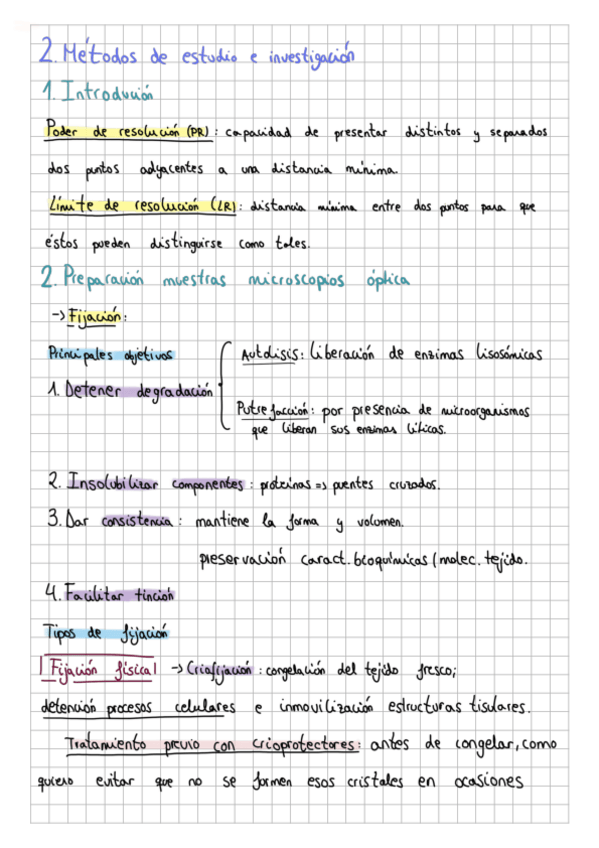 2. Métodos de estudio e investigación
1. Introdución
Poder de resolución (PR): capacidad de presentar distintos y separados
dos puntos adyacentes a una distancia mínima.
Límite de resolución (LR): distancia mínima entre dos puntos para que
éstos pueden distinguirse como tales.
2. Preparación muestras microscopios óptica
-> Fijación:
Principales objetivos
Autolisis: liberación de enzimas lisosómicas
1. Detener degradación
Putrefacción: por presencia de microorganismos
que liberan sus enzimas líticas.
2. Insolubilizar componentes: proteínas => puentes cruzados.
3. Dar consistencia: mantiene la forma y volumen.
preservación caract. bioquímicas (molec. tejido.
4. Facilitar tinción
Tipos de fijación
| Fijación física | -> Criofijación: congelación del tejido fresco;
detención procesos celulares e inmovilización estructuras tisulares.
Tratamiento previo con crioprotectores: antes de congelar, como
quiero evitar que no se formen esos cristales en ocasiones